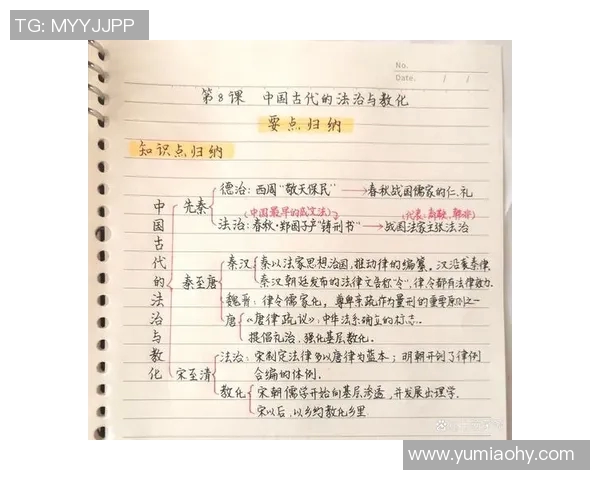 TG: MYYJJPP
No.
Date. / /
第8课 中国古代的法治与教化
要点归纳
知识点归纳
中国古代的法治与教化
先秦
德治：西周"敬天保民"→春秋战国儒家的仁、礼
(中国最早的成文法)
(代表：商鞅，韩非)
法治：春秋·郑国子产"铸刑书"→战国法家主张法治
秦至唐
秦汉
秦以法家思想治国，推动律的编纂，汉沿袭秦律
秦汉朝廷发布的法律文告称"令"，律令都有法律效力.
魏晋：律令儒家化，尊卑亲疏作为量刑的重要原则之一
唐
《唐律疏议》：中华法系确立的标志.
提倡礼治，强化基层教化.
宋至清
法治：宋制定法律多以唐律为蓝本；明朝开创了律例
合编的体例.
教化
宋朝儒学开始向基层渗透，并发展出理学.
宋以后，以乡约教化乡里
www.yumiaohy.com